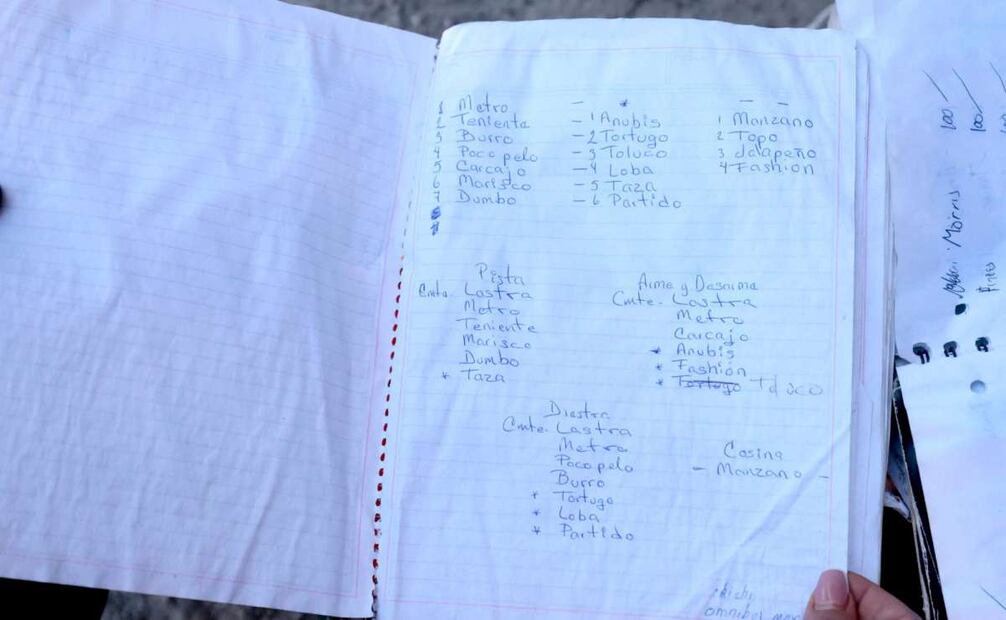 1 Metro
2 Teniente
3 Burro
4 Pocopelo
5 Carcajo
6 Marisco
7 Dumbo
8
9
- *
- 1 Anubis
- 2 Tortugo
- 3 Toluco
- 4 Loba
- 5 Taza
- 6 Partido
- -
1 Manzano
2 Topo
3 Jalapeño
4 Fashion
Pista
Cmte. Lastra
Metro
Teniente
Marisco
Dumbo
* Taza
Arme y Desarme
Cmte. Lastra
Metro
Carcajo
* Anubis
* Fashion
* Tortugo Toluco
Diestra
Cmte. Lastra
Metro
Pocopelo
Burro
* Tortugo
* Loba
* Partido
Cosina
- Manzano -
omnibus
Morris
100
100